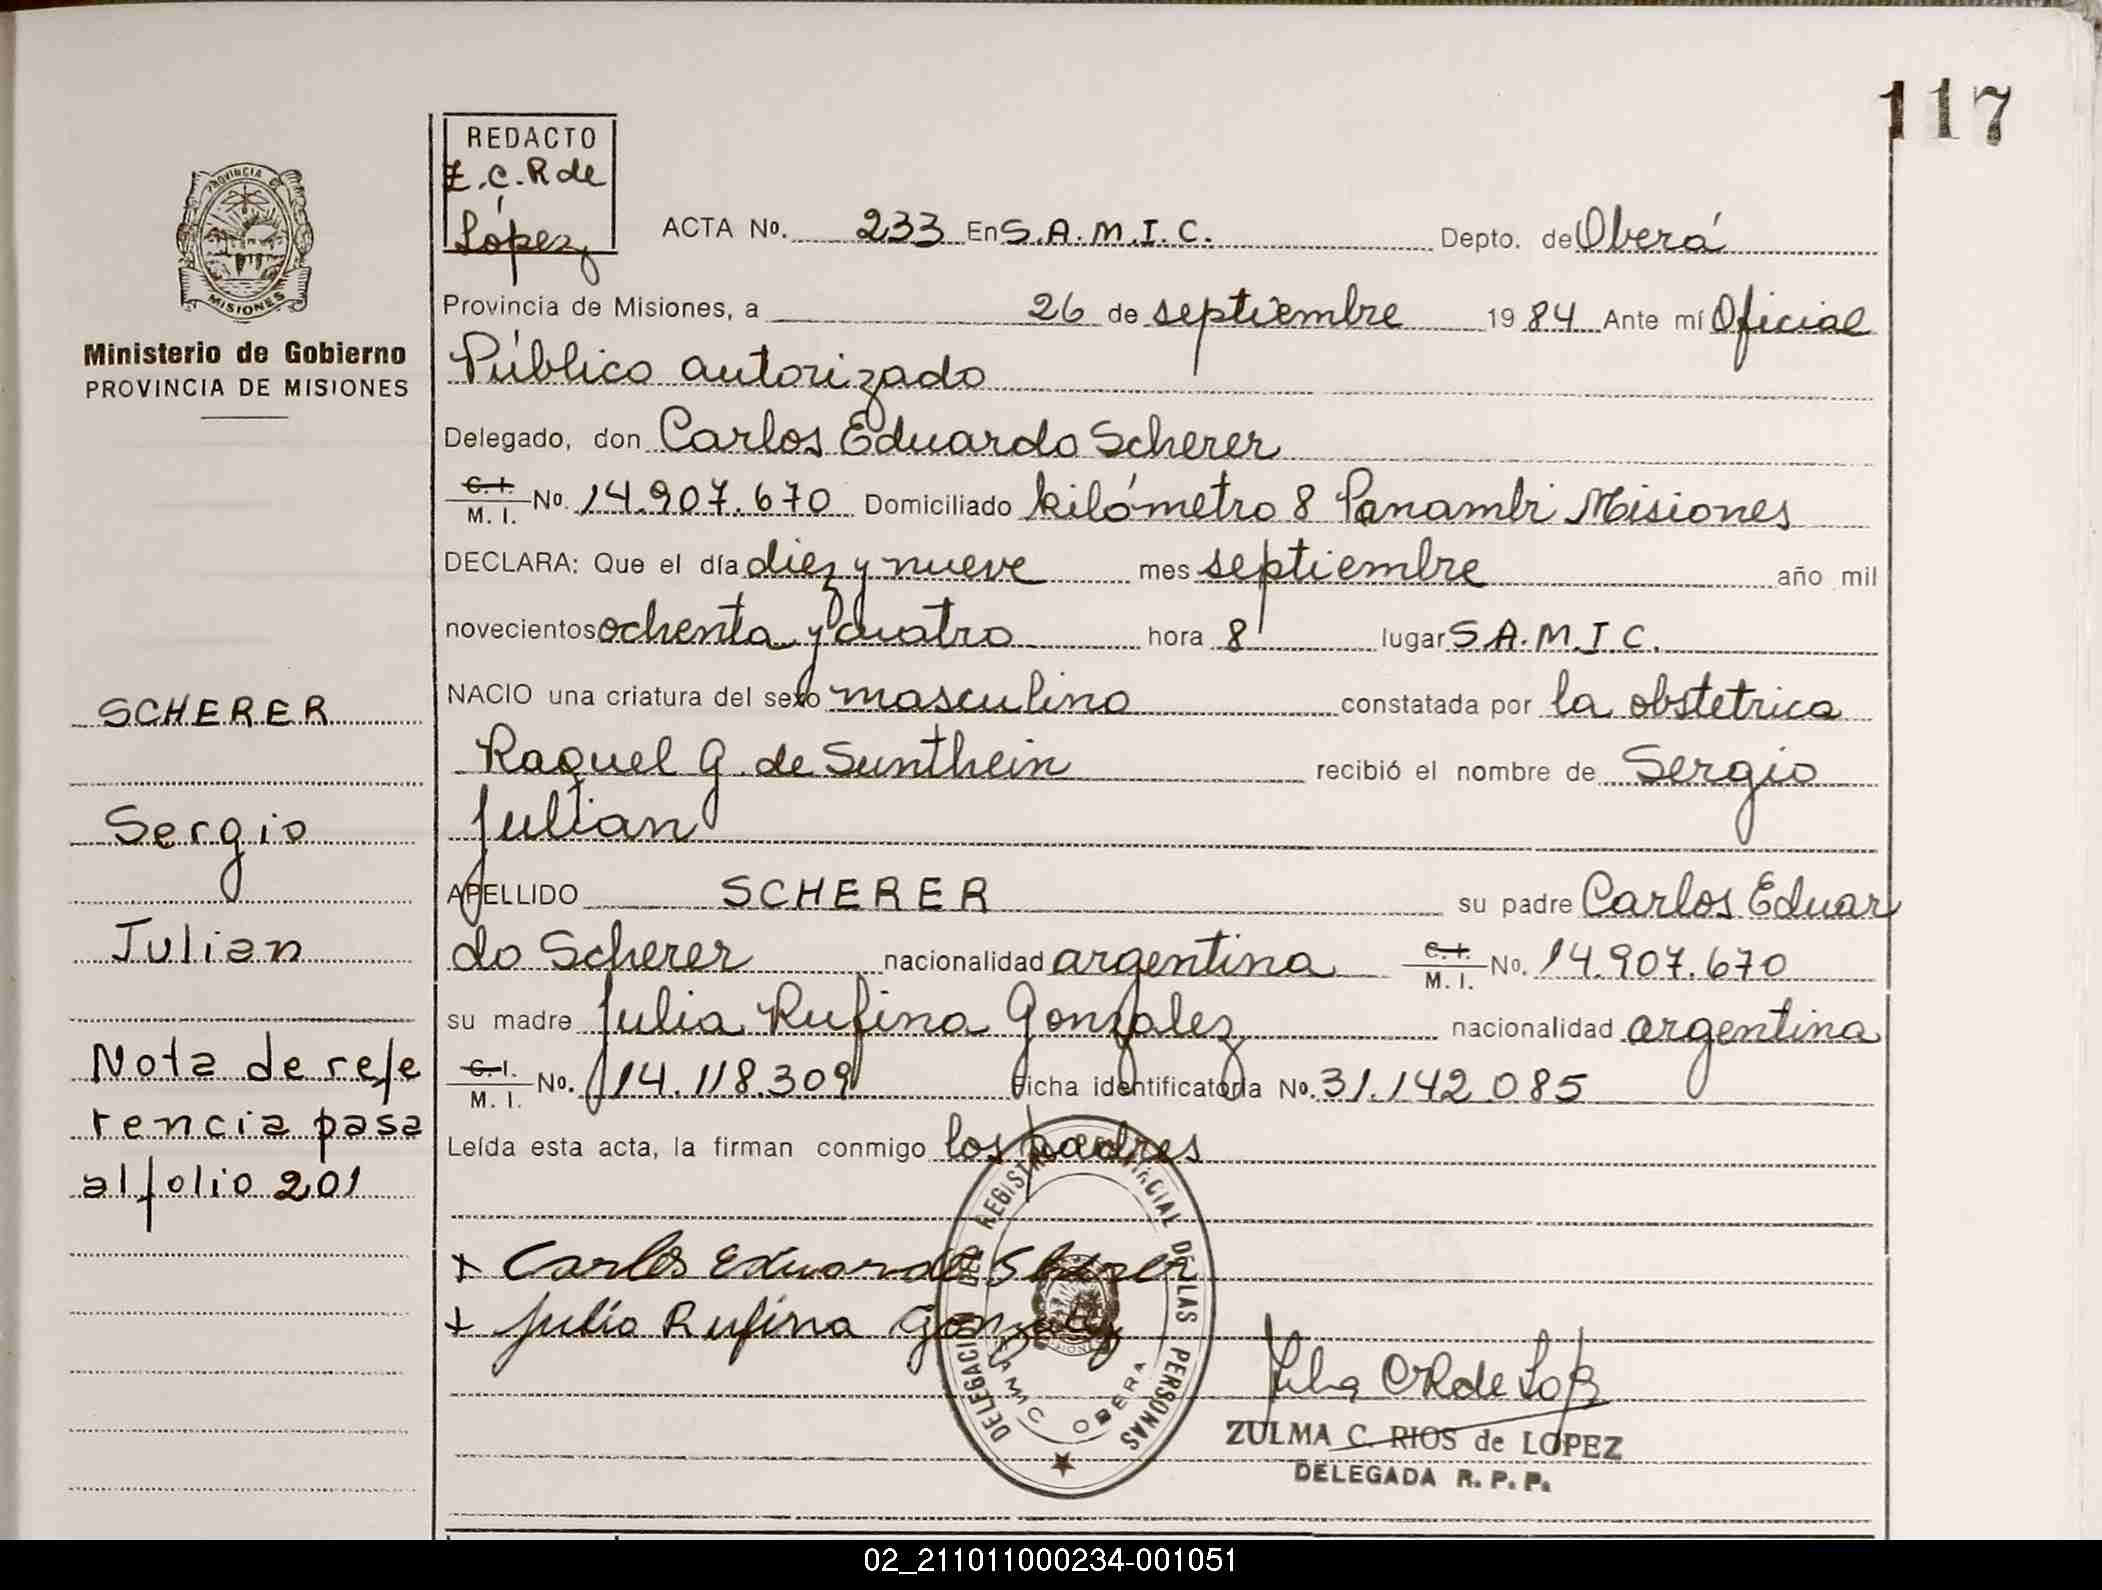 117
REDACTO
Z.C.R de
López
ACTA No. 233 En S.A.M.I.C. Depto. de Oberá
Provincia de Misiones, a 26 de septiembre 1984 Ante mí Oficial
Público autorizado
Delegado, don Carlos Eduardo Scherer
C.I. M. I. No. 14.907.670 Domiciliado kilómetro 8 Panambi Misiones
DECLARA: Que el día diez y nueve mes septiembre año mil
novecientos ochenta y cuatro hora 8 lugar S.A.M.I.C.
NACIO una criatura del sexo masculino constatada por la obstetrica
Raquel G. de Sunthein recibió el nombre de Sergio
Julian
APELLIDO SCHERER su padre Carlos Eduar
do Scherer nacionalidad argentina C.I. M. I. No. 14.907.670
su madre Julia Rufina Gonzalez nacionalidad argentina
C.I. M. I. No. 14.118.309 Ficha identificatoria No. 31.142.085
Leída esta acta, la firman conmigo los padres
+ Carlos Eduardo Scherer
+ Julia Rufina Gonzalez
DELEGACION DEL REGISTRO PROVINCIAL DE LAS PERSONAS
SAMIC OBERA
ZULMA C. RIOS de LOPEZ
DELEGADA R. P. P.
PROVINCIA DE
MISIONES
Ministerio de Gobierno
PROVINCIA DE MISIONES
SCHERER
Sergio
Julian
Nota de refe
rencia pasa
al folio 201
02_211011000234-001051